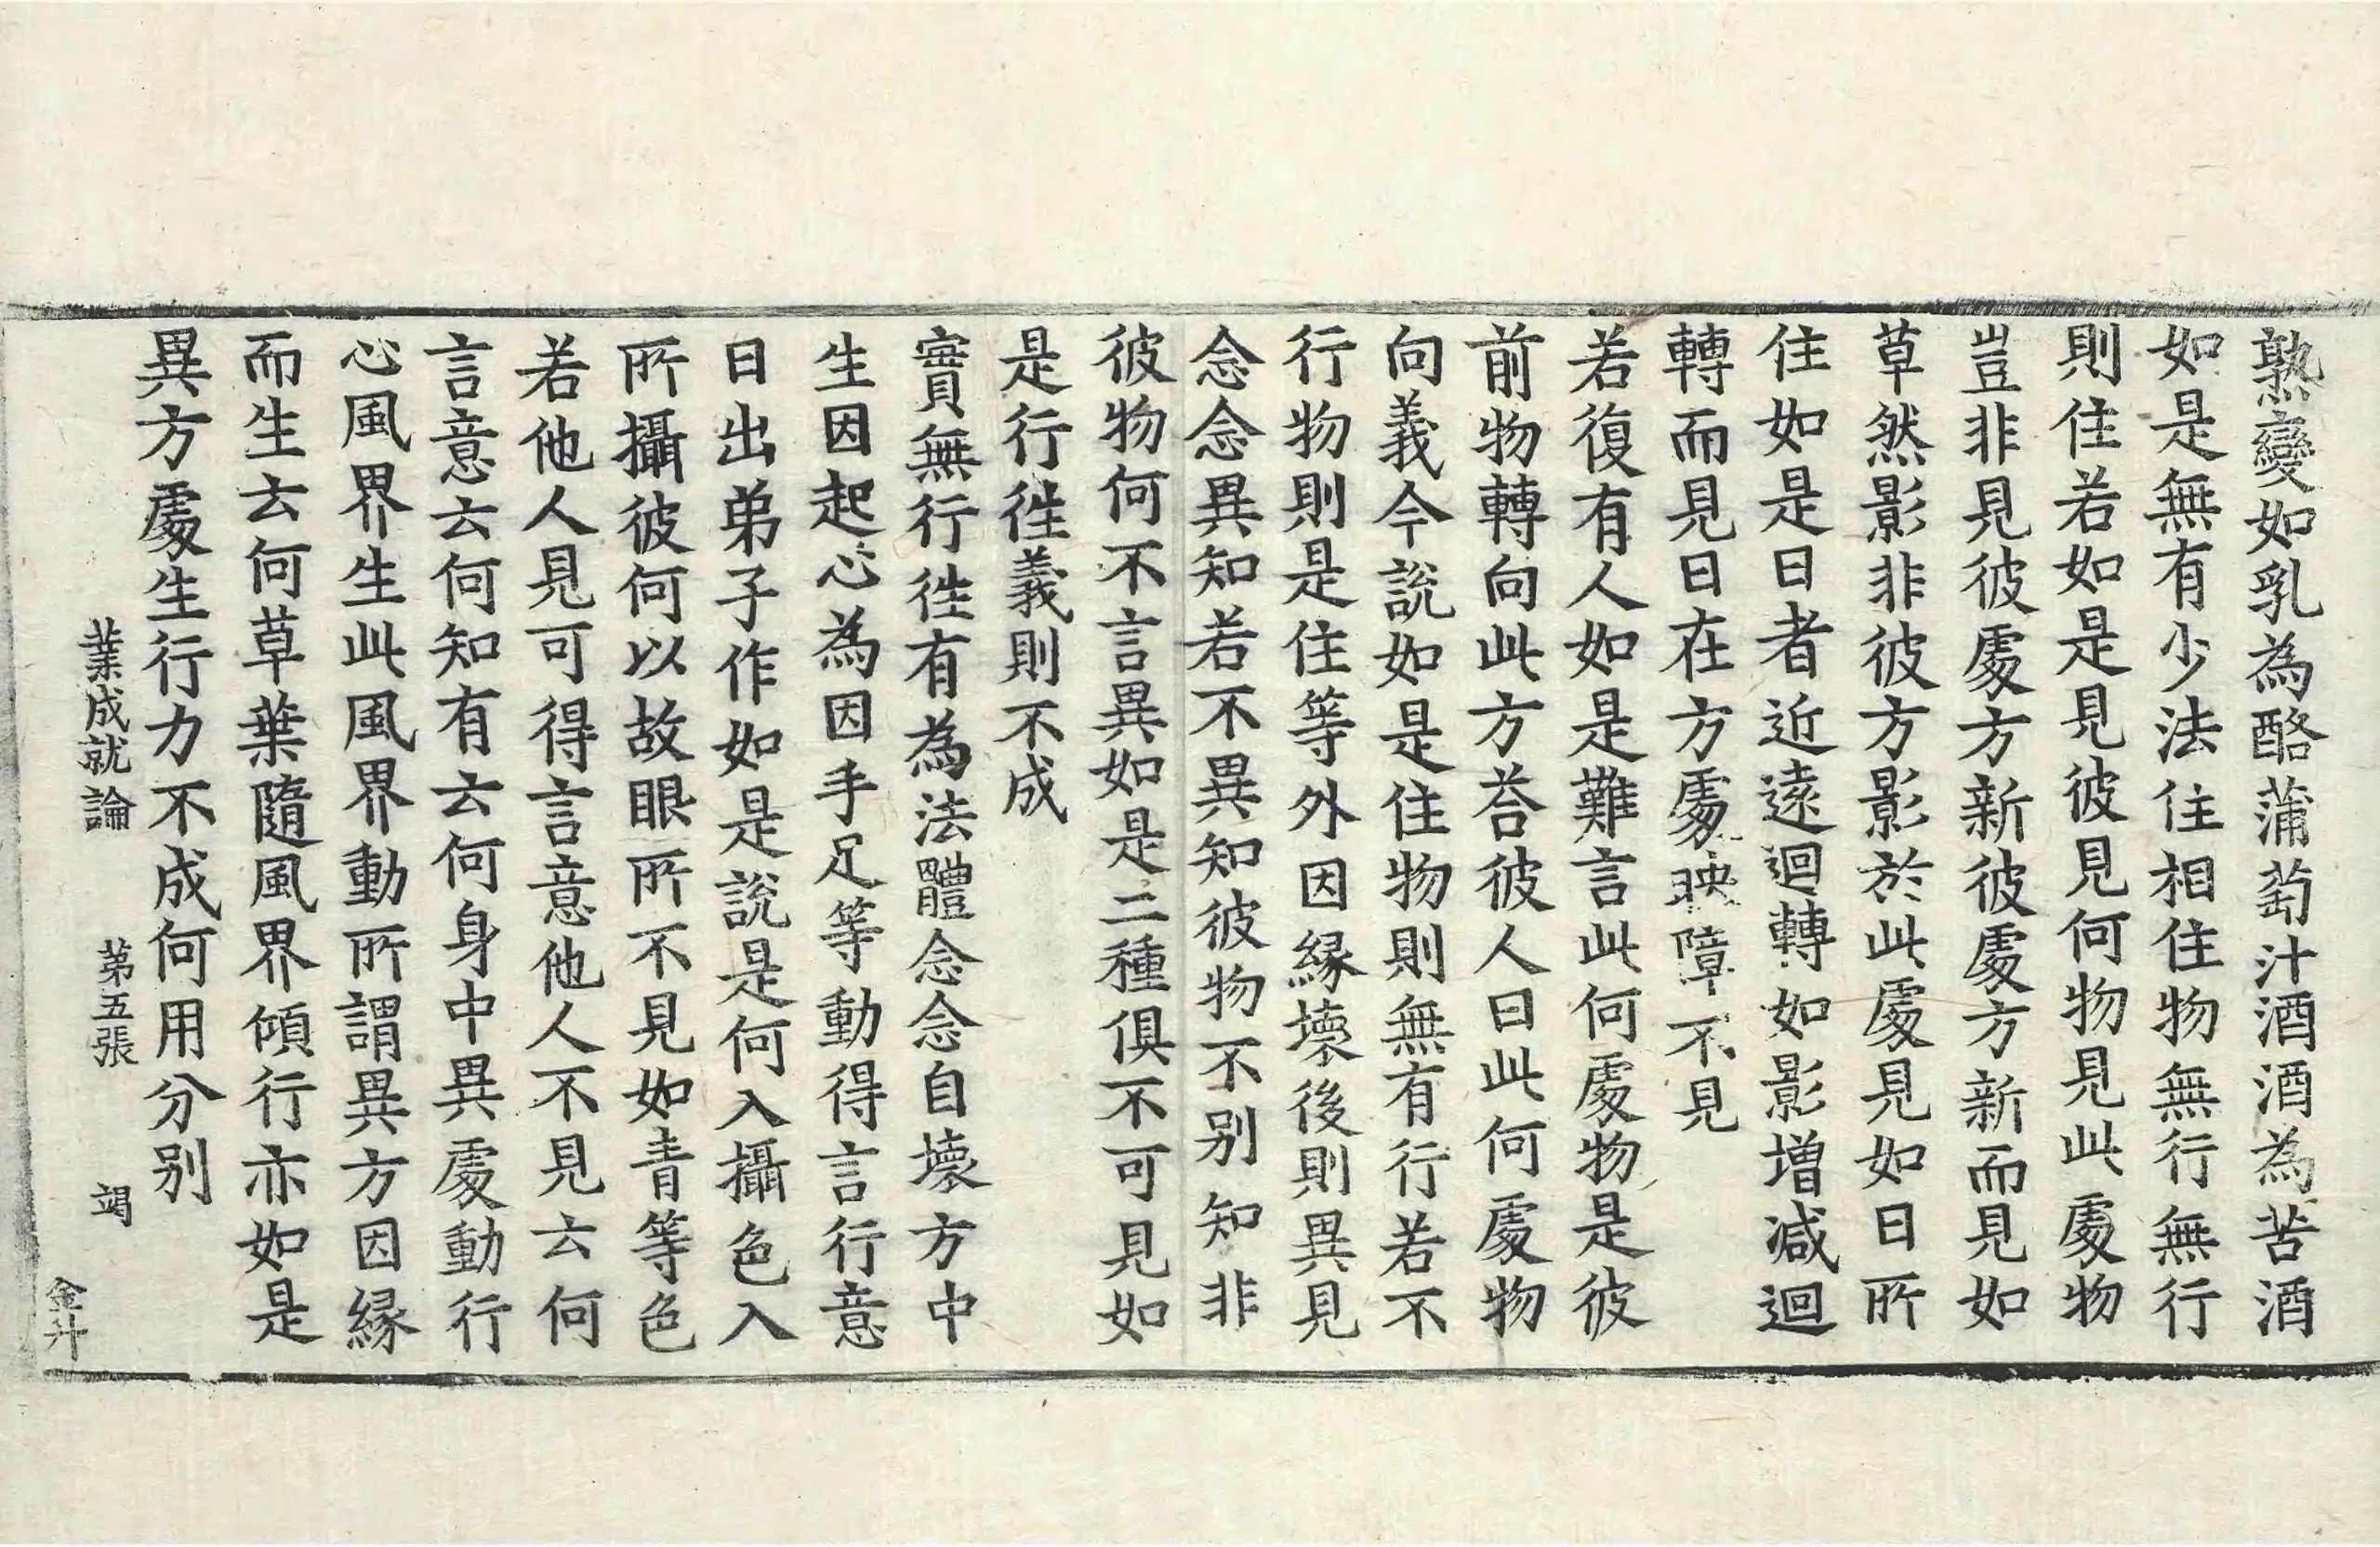 熟變如乳為酪蒲萄汁酒酒為苦酒
如是無有少法住相住物無行無行
則住若如是見彼見何物見此處物
豈非見彼處方新彼處方新而見如
草然影非彼方影於此處見如日所
住如是日者近遠迴轉如影增減迴
轉而見日在方處映障不見
若復有人如是難言此何處物是彼
前物轉向此方荅彼人曰此何處物
向義今說如是住物則無有行若不
行物則是住等外因緣壞後則異見
念念異知若不異知彼物不別知非
彼物何不言異如是二種俱不可見如
是行徃義則不成
實無行徃有為法體念念自壞方中
生因起心為因手足等動得言行意
日出弟子作如是說是何入攝色入
所攝彼何以故眼所不見如青等色
若他人見可得言意他人不見云何
言意云何知有云何身中異處動行
心風界生此風界動所謂異方因緣
而生云何草葉隨風界傾行亦如是
異方處生行力不成何用分別
業成就論　第五張　竭
金斗